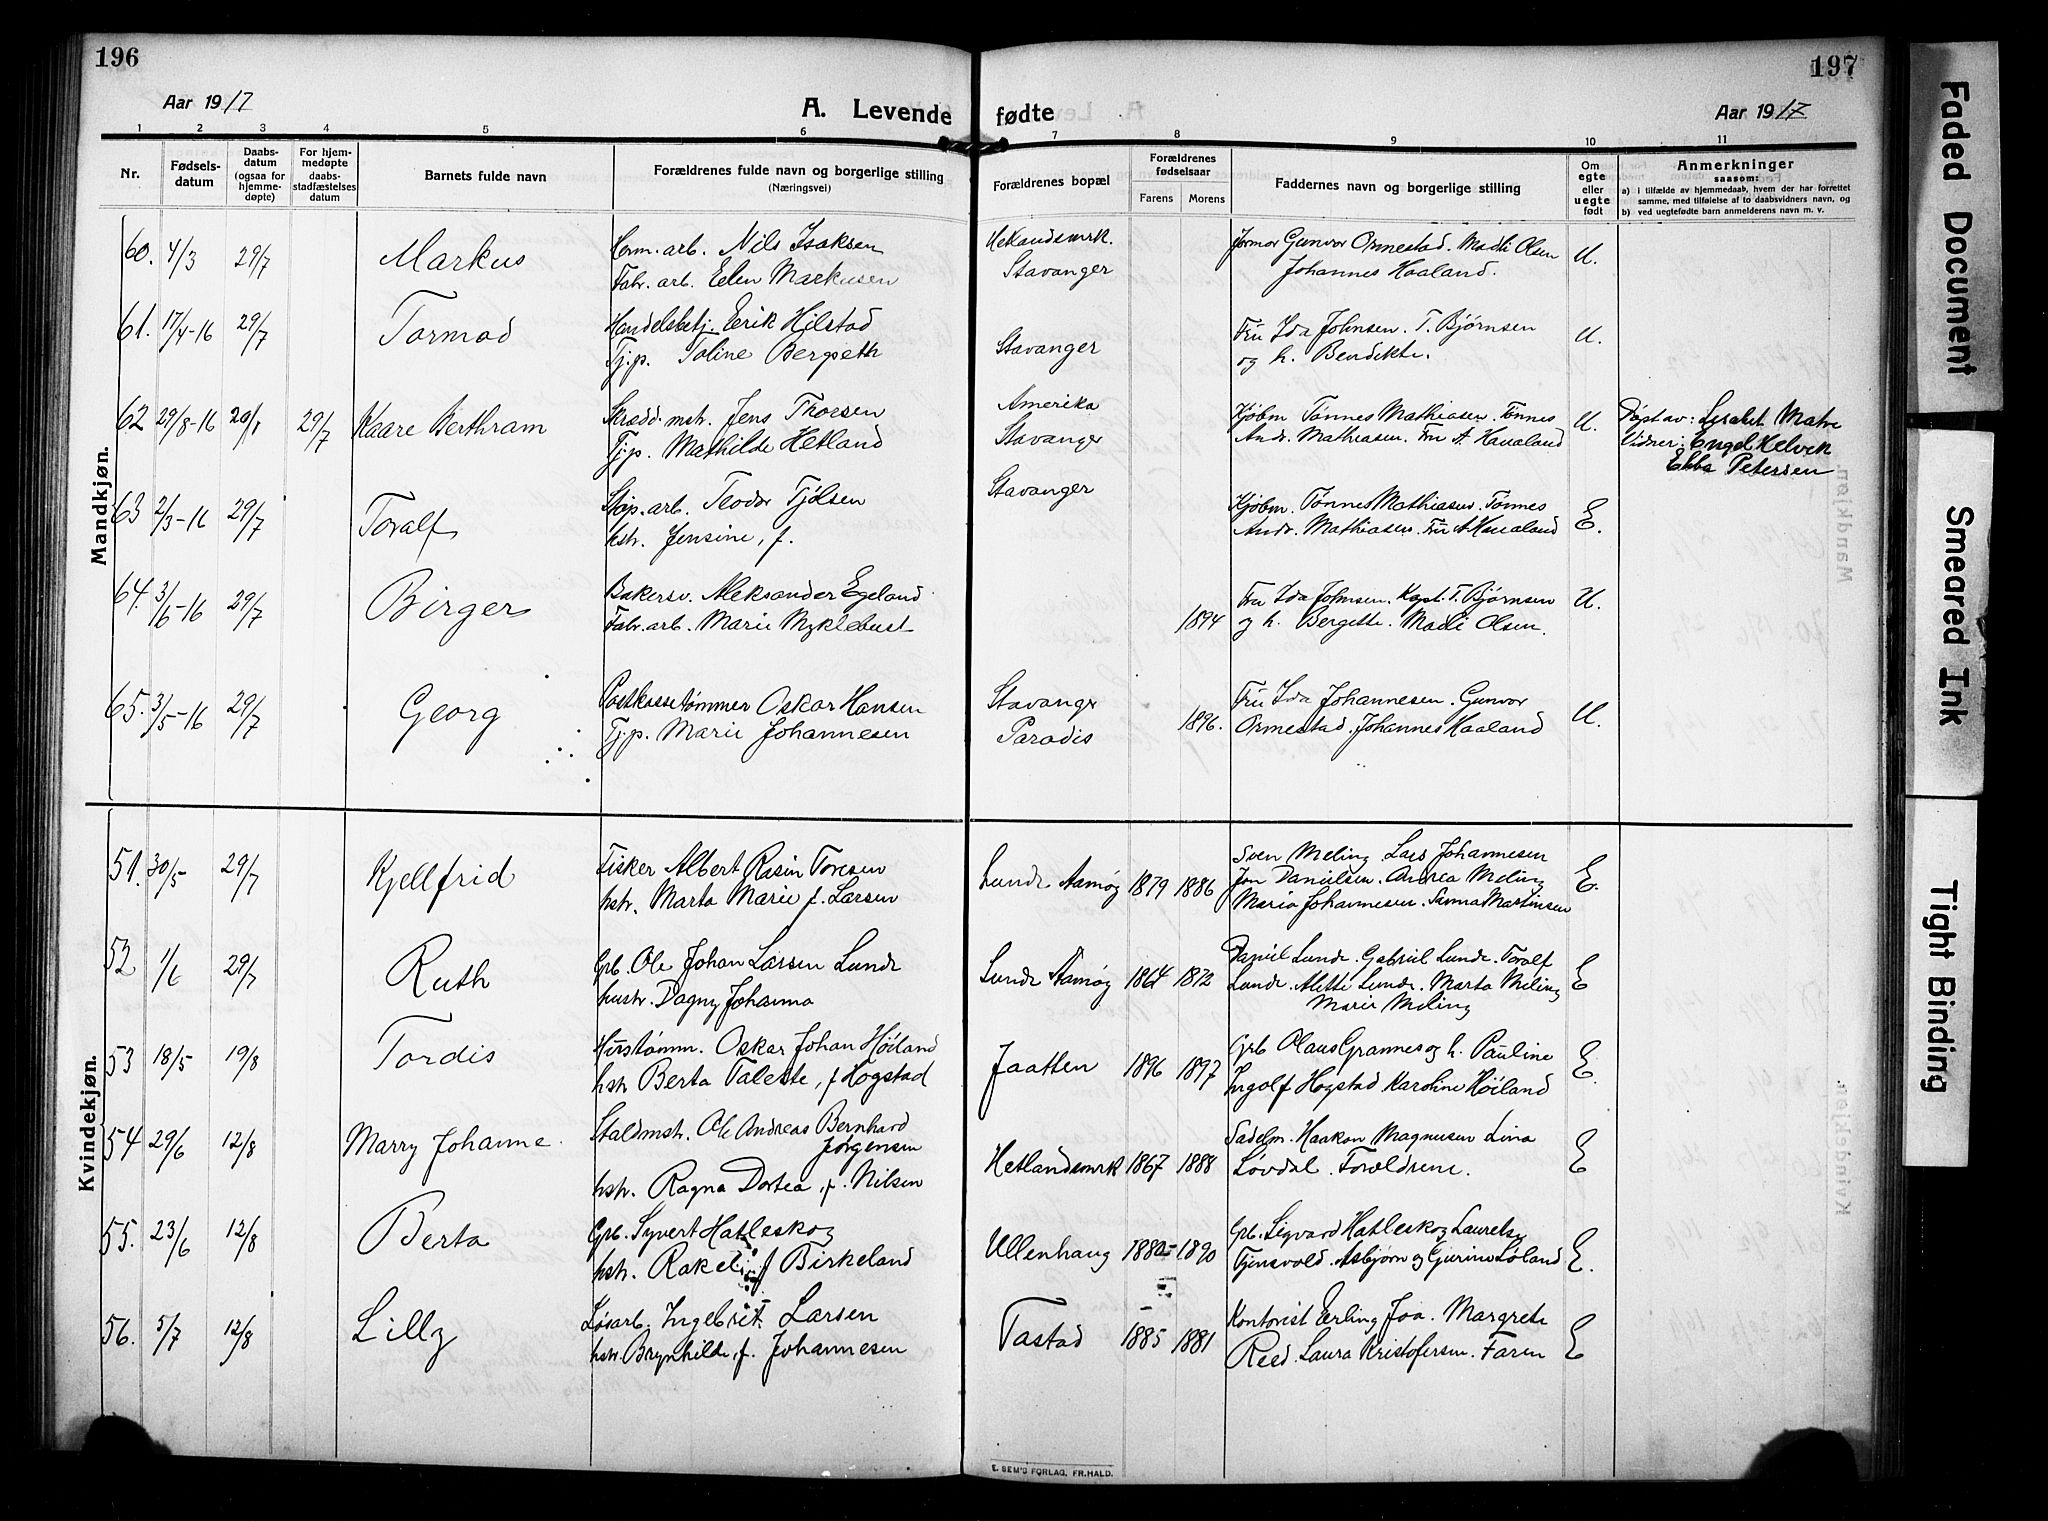 196
197
Aar 1917
A. Levende fødte
Aar 1917
1 2 3 4 5 6 7 8 9 10 11
Nr.
Fødsels-
datum
Daabs-
datum
(ogsaa for
hjemme-
døpte)
For hjem-
medøpte
daabs-
stadfæstelses
datum
Barnets fulde navn
Forældrenes fulde navn og borgerlige stilling
(Næringsvei)
Forældrenes bopæl
Forældrenes
fødselsaar
Farens Morens
Faddernes navn og borgerlige stilling
Om
egte
eller
uegte
født
Anmerkninger
saasom:
a) i tilfælde av hjemmedaab, hvem der har forrettet
samme, med tilføielse af to daabsvidners navn, og
b) ved uegtefødte barn anmelderens navn m. v.
Mandkjøn.
60. 4/3 29/7 Markus
Herm. arb. Nils Isaksen
Fabr. arb. Elen Markusen
Hetlandsmrk.
Stavanger
Jormor Gunvor Ormestad. Madli Olsen
Johannes Haaland.
U.
61. 17/4-16 29/7 Tormod
Handelsbetj. Eerik Hilstad
Tj.p. Toline Bergseth
Stavanger
Fru Ida Johnsen. T. Bjørnsen
og h. Bendikte.
U.
62 29/8-16 20/1 29/7 Kaare Berthram
Skrædd. mstr. Jens Thorsen
Tj.p. Mathilde Hetland
Amerika
Stavanger
Kjøbm Tønnes Mathiasen. Tønnes
Andr. Mathiasen. Fru A Haualand
U.
Døpt av: Lisabet Matre
Vidner: Engel Helvik
Ebba Petersen
63 2/3-16 29/7 Toralf
Støp. arb. Teodor Tjølsen
hstr. Jensine, f.
Stavanger
Kjøbm. Tønnes Mathiasen. Tønnes
Andr. Mathiasen. Fru A Haualand
E.
64. 3/6-16 29/7 Birger
Bakersv. Aleksander Egeland
Fabr. arb. Marie Myklebust
1894
Fru Ida Johnsen. Kapt. T. Bjørnsen
og h. Bergette. Madli Olsen.
U.
65. 3/5-16 29/7 Georg
Postkassetømmer Oskar Hansen
Tj.p. Marie Johannesen
Stavanger
Paradis
1896.
Fru Ida Johannesen. Gunvor
Ormestad. Johannes Haaland
U.
Kvindekjøn.
51. 30/5 29/7 Kjellfrid
Fisker Albert Rasin Toresen
hstr. Marta Marie f. Larsen
Lunde Aamøy 1879 1886
Sven Meling Lars Johannesen
Jon Danielsen. Andrea Meling
Maria Johannesen. Sanna Martinsen
E.
52 1/6 29/7 Ruth
Grb. Ole Johan Larsen Lunde
hustr. Dagny Johanna
Lunde Aamøy 1864 1872
Daniel Lunde. Gabriel Lunde. Toralf
Lunde. Alette Lunde. Marta Meling
Marie Meling
E
53 18/5 19/8 Tordis
Oskar Johan Höiland
hstr Berta Taleste, f Hogstad
Jaatten 1896 1897
Grb Olaus Grannes og h. Pauline
Ingolf Hogstad Karoline Höiland
E.
54 29/6 12/8 Marry Johanne.
Staldmstr. Ole Andreas Bernhard
Jørgensen
hstr. Ragna Dortea, f. Nilsen
Hetlandsmrk 1867 1888
Sadelm. Haakon Magnusen Lina
Løvdal. Forældrene.
E
55. 23/6 12/8 Berta
Grb. Syvert Hatleskog
hstr. Rakel f Birkeland
Ullenhaug 1882 1890
Grb. Sigvard Hatleskog Laurets
Tjensvold. Asbjørn og Gjerine Løland
E.
56. 5/7 12/8 Lilly
Løsarb. Ingebrit. Larsen
hstr. Brynhilde, f. Johannesen
Tastad 1885 1881
Kontorist Eerling Joa. Margrete
Reed. Laura Kristofersen. Faren
E
E. SEM'S FORLAG, FR.HALD.
Faded Document
Smeared Ink
Tight Binding